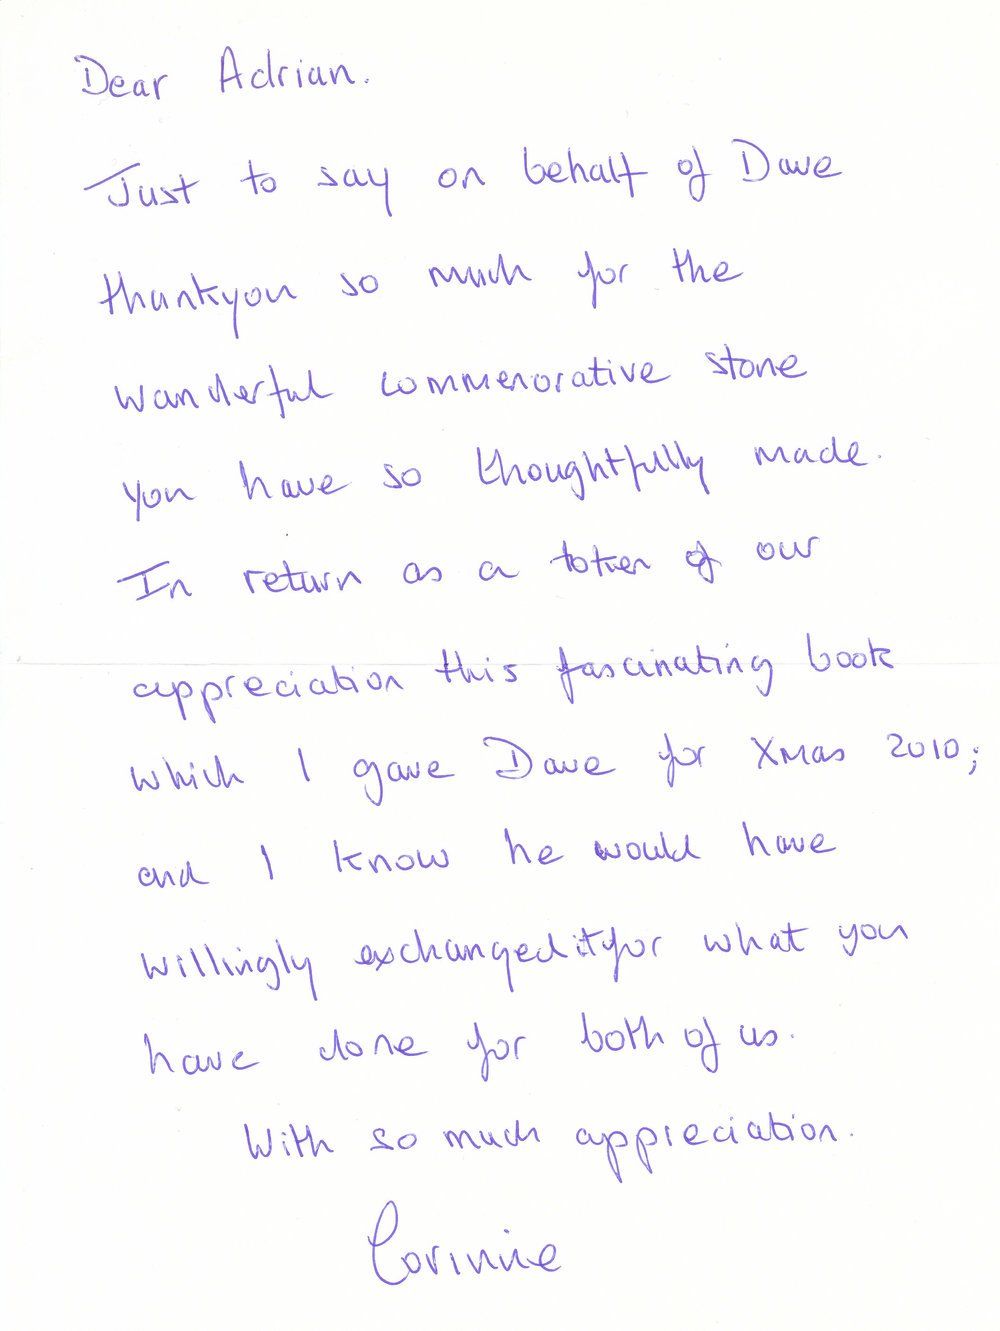 Dear Adrian.
Just to say on behalf of Dave
thankyou so much for the
wonderful commenorative stone
you have so thoughtfully made.
In return as a token of our
appreciation this fascinating book
which I gave Dave for Xmas 2010;
and I know he would have
willingly exchanged it for what you
have done for both of us.
With so much appreciation.
Corinne